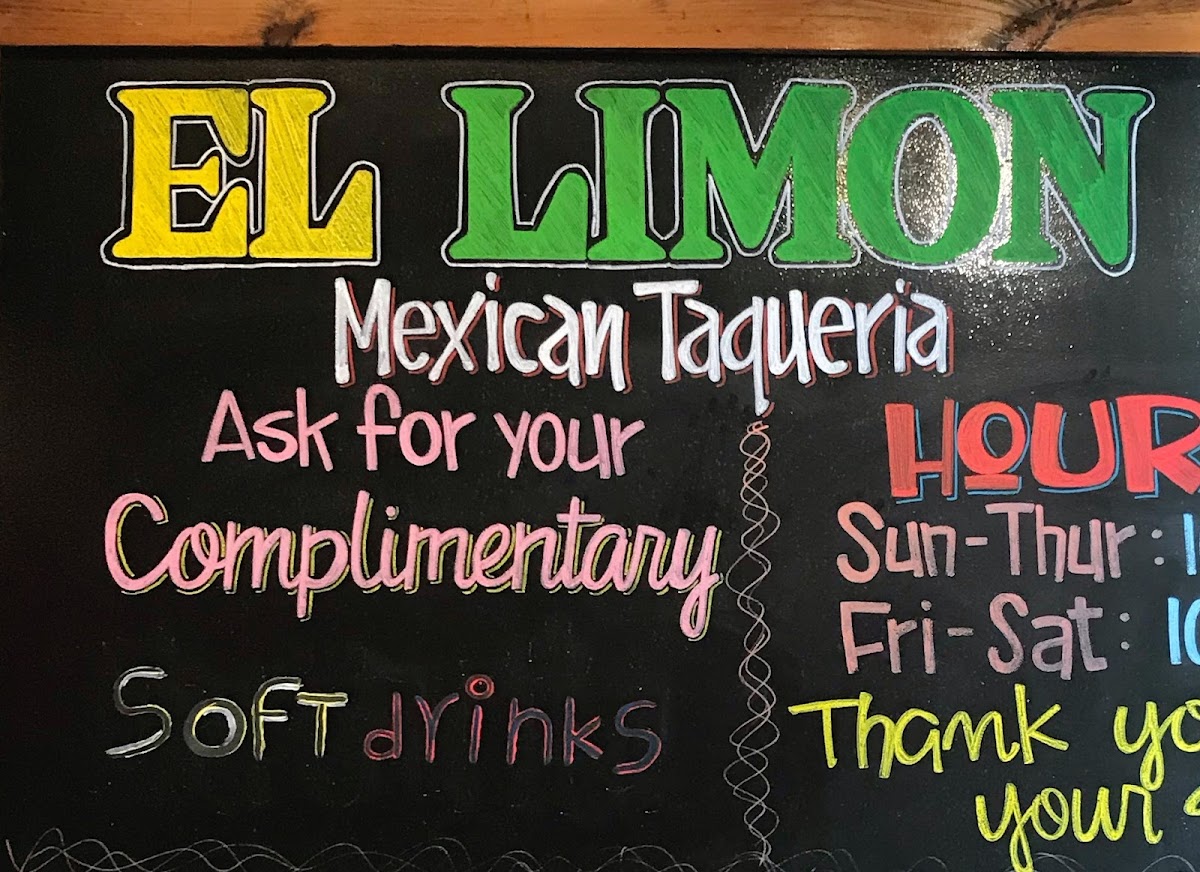 EL LIMON
Mexican Taqueria
Ask for your
Complimentary
Soft drinks
HOUR
Sun-Thur:
Fri-Sat: 10
Thank
your